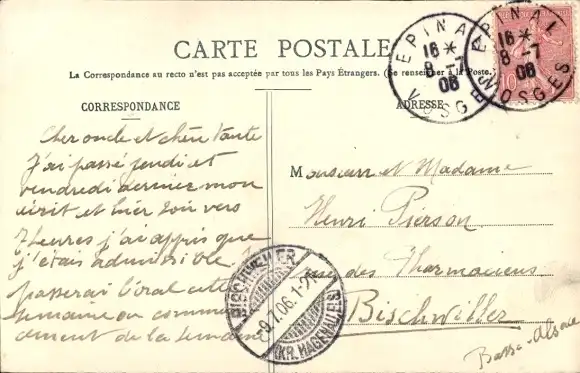 CARTE POSTALE
La Correspondance au recto n'est pas acceptée par tous les Pays Étrangers. (Se renseigner à la Poste.)
CORRESPONDANCE
ADRESSE
EPINAL
16*
8-7
06
VOSGES
EPINAL
16*
8-7
06
VOSGES
10
Cher oncle et chère tante
J'ai passé jeudi et
vendredi dernier mon
écrit et hier soir vers
7 heures j'ai appris que
j'étais admissible. Je
passerai l'oral cette
semaine ou commen
cement de la semaine
Monsieur et Madame
Henri Pierson
rue des Pharmaciens
Bischwiller
Basse-Alsace
BISCHWEILER
9.7.06.1-2N
(KR. HAGENAU ELS)